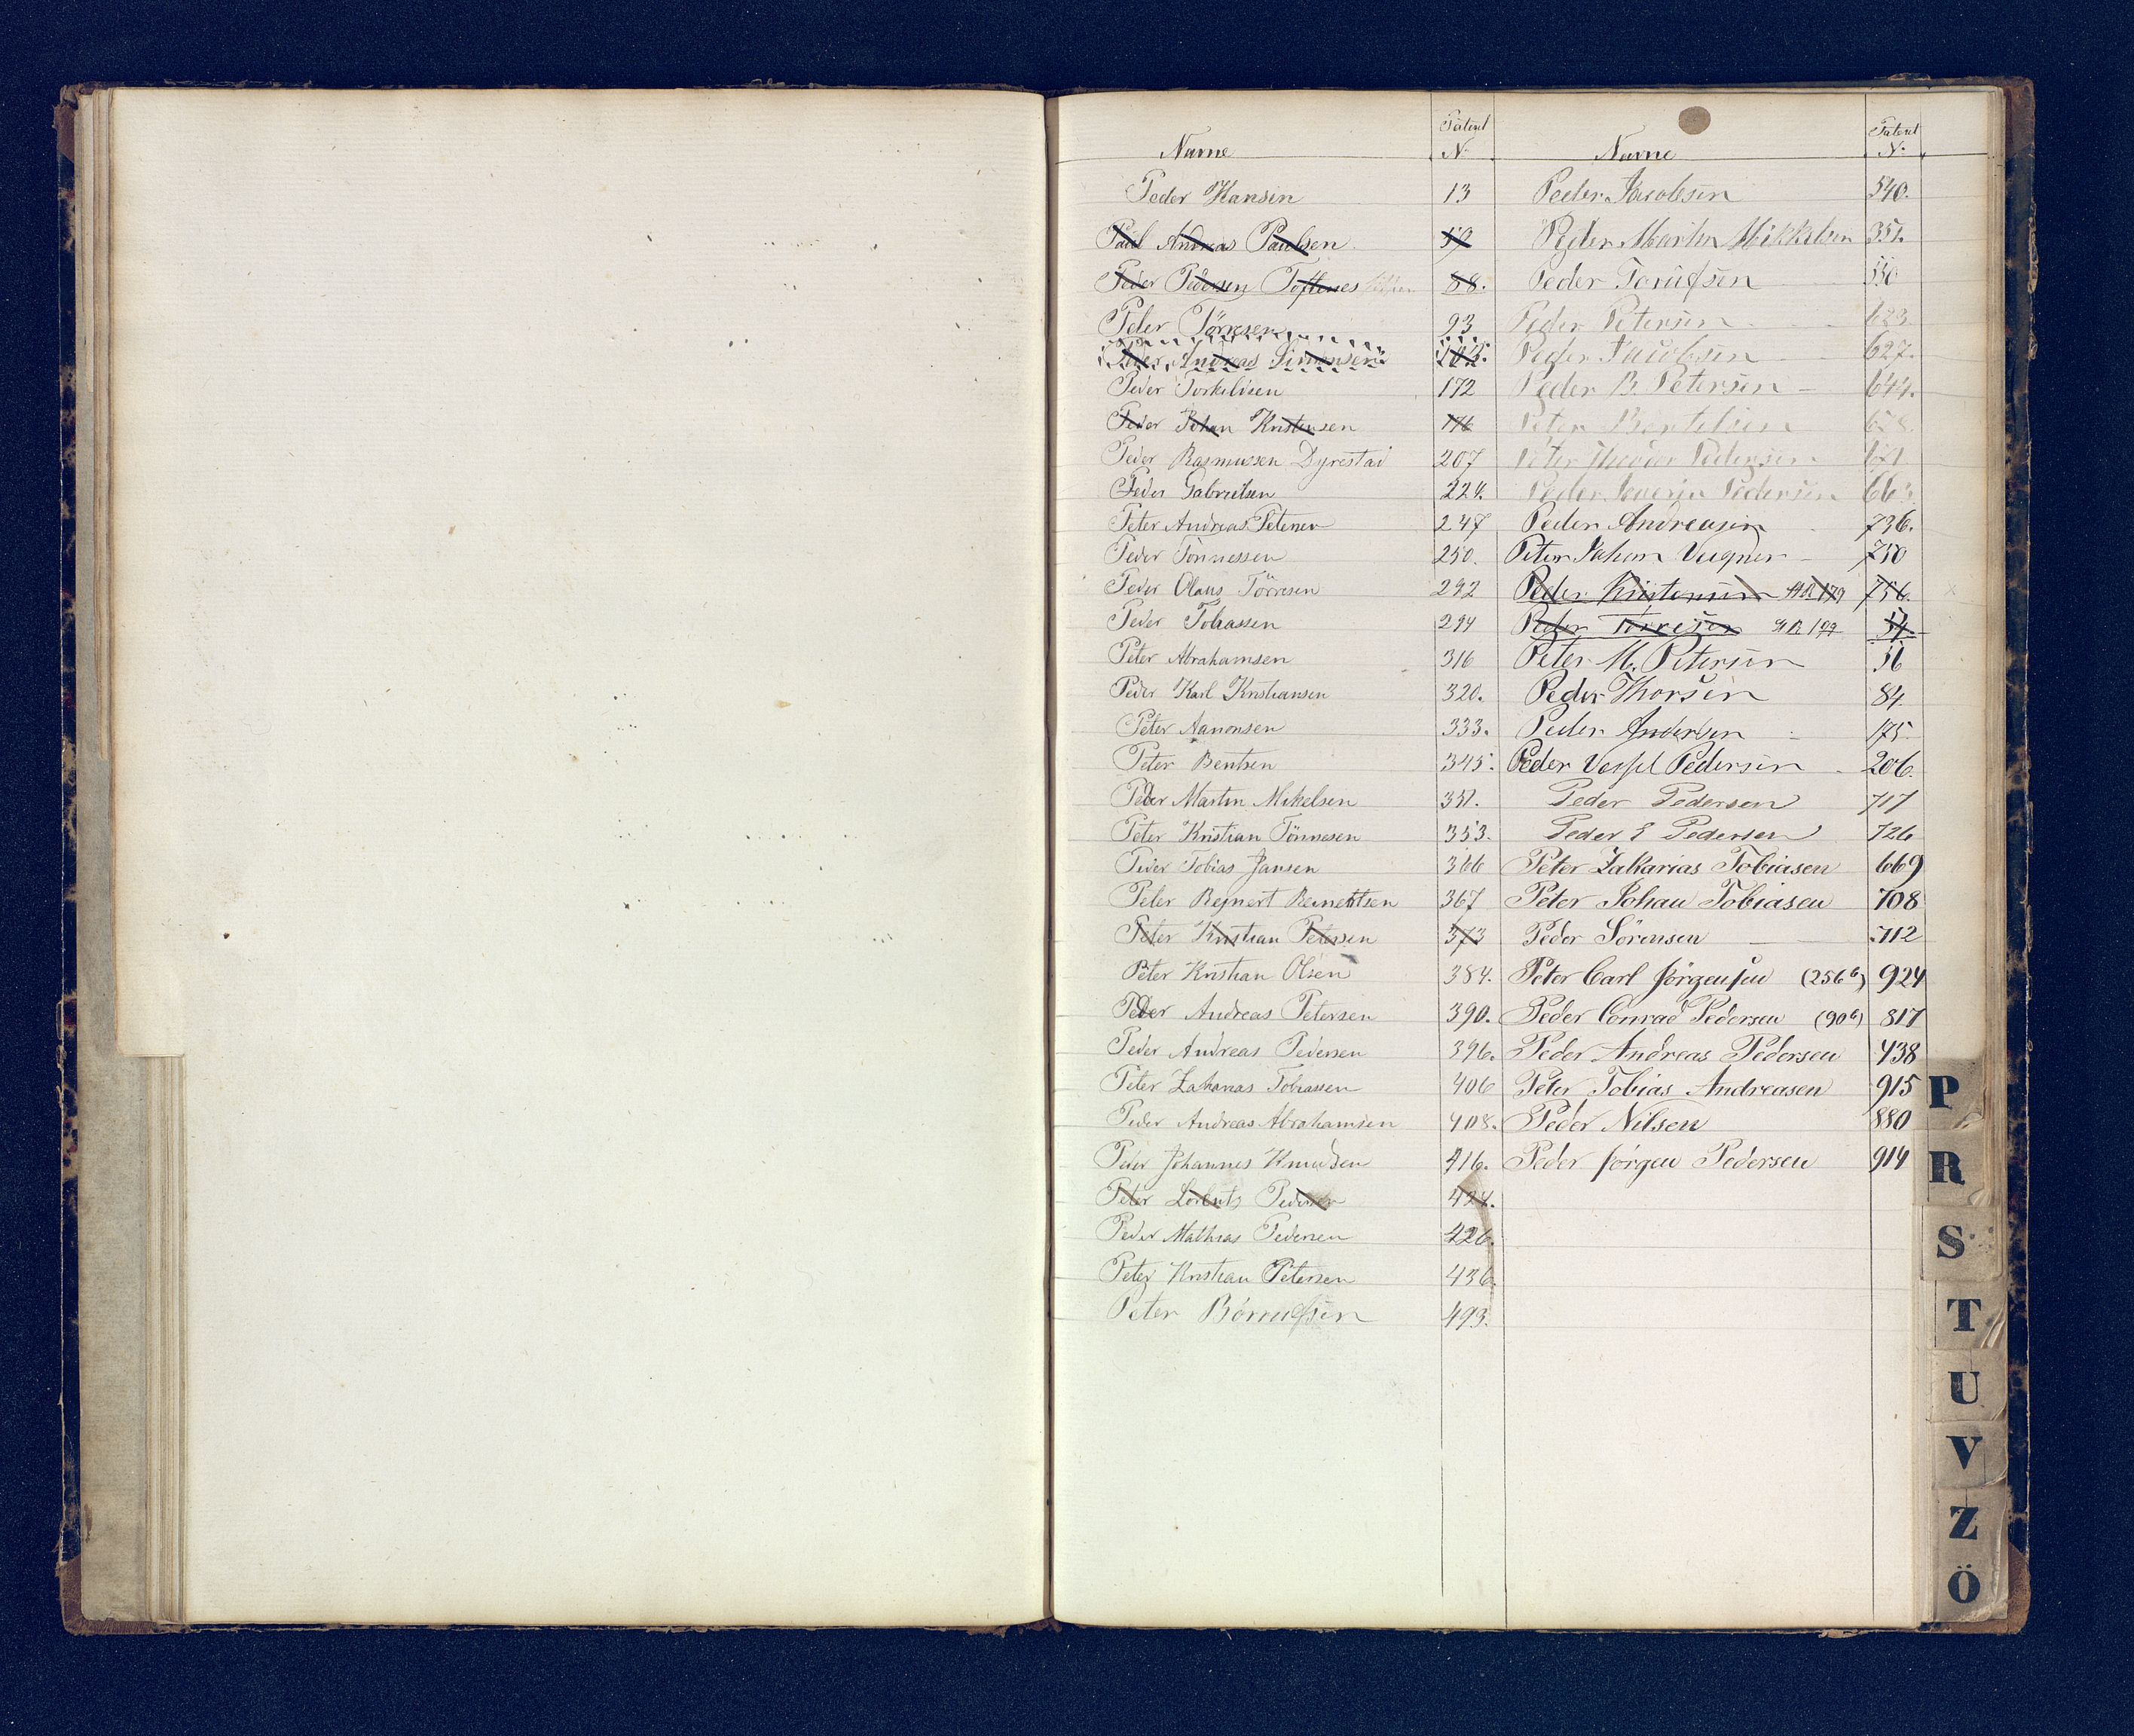 Navne Patent N.
Peder Hansen 13
Paul Andreas Paulsen 59
Peder Pedersen Toftenes 88.
Peder Törresen 93
Peder Andreas Simonsen
Peder Torkelsen 172
Peder Johan Kristensen 176
Peder Rasmussen Dyrestad 207
Peder Gabrielsen 224.
Peter Andreas Petersen 247
Peder Tönnessen 250.
Peder Olaus Törresen 292
Peder Tobiassen 294
Peter Abrahamsen 316
Peder Karl Kristiansen 320.
Peter Aanonsen 333.
Peter Bentsen 345.
Peder Martin Mikelsen 351.
Peter Kristian Tönnesen 353.
Peder Tobias Jansen 366
Peter Rejnert Reinertsen 367
Peter Kristian Petersen 373
Peter Kristian Olsen 384.
Peder Andreas Petersen 390.
Peder Andreas Pedersen 396.
Peter Zakarias Tobiassen 406
Peder Andreas Abrahamsen 408.
Peder Johannes Knudsen 416.
Peter Lorentz Pedersen 424.
Peder Mathias Pedersen 426.
Peter Kristian Petersen 436.
Peter 493.
Navne Patent N.
Peder Jacobsen 540.
Peder Martin Mikkelsen 351.
Peder 550
Peder Petersen 623
Peder Jacobsen 627.
Peder B. Petersen 644.
Peter Bertelsen 658.
Peter Theodor Pedersen 621
Peder Severin Pedersen
Peder Andreasen 736.
Peter Johan Vegner 750
Peder Kristensen AR 179 756.
Peder Törresen AR 199 54.
Peter M. Petersen 56
Peder Thorsen 84
Peder Andersen 175.
Peder Vessel Pedersen 206.
Peder Pedersen 717
Peder E Pedersen 726
Peter Zakarias Tobiasen 669
Peter Johan Tobiasen 708
Peder Sörensen 712
Peter Carl Jörgensen (256 b) 924
Peder Conrad Pedersen (90 b) 817
Peder Andreas Pedersen 438
Peter Tobias Andreasen 915
Peder Nilsen 880
Peder Jörgen Pedersen 914
P
R
S
T
U
V
Z
Ö